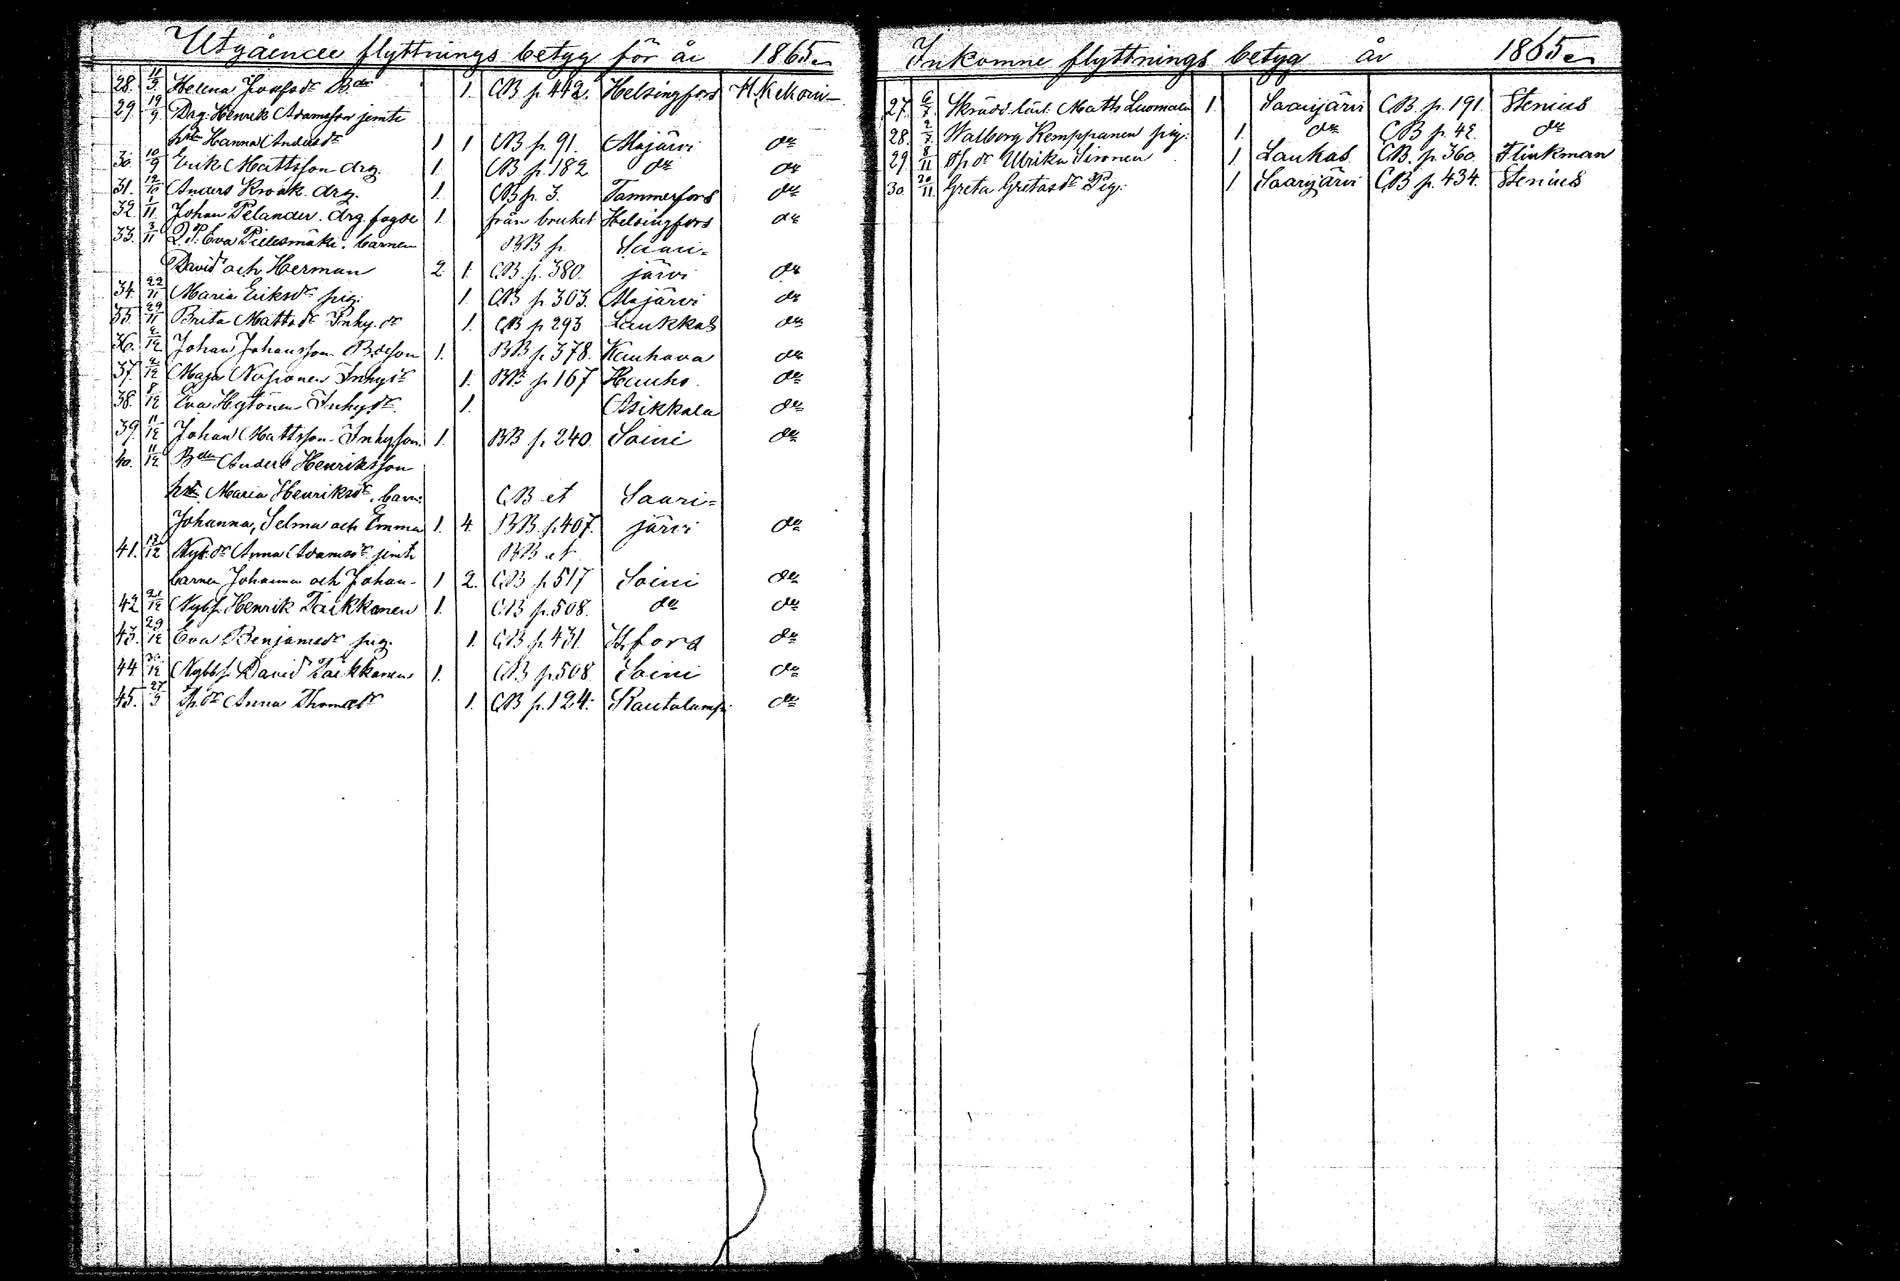 Utgåencee flyttnings betyg för år 1865
28. 11/9 Helena Josefsdr Bdr 1. CB p. 442. Helsingfors H. Kekoni
29. 19/9 Drg. Henrik Adamsson jemte
hst. Hanna Andersdr 1 1 CB p. 91. Alajärvi do
30. 10/9 Erik Mattsson drg. 1. CB p. 182 do do
31. 12/10 Anders Kroak drg. 1. CB p. 3. Tammerfors do
32. 1/11 Johan Pelander. drg. fogde 1. från bruket Helsingfors do
33. 3/11 Q. P. Eva Pielesmäki. barnen BB p Saari=
David och Herman 2. 1. CB. p. 380. järvi do
34. 22/11 Maria Eriksdr pig. 1. CB p 303. Alajärvi do
35. 29/11 Brita Mattsdr Inhy. dr 1. CB p 293 Laukkas do
36. 2/12 Johan Johansson. Bdeson 1. BB p. 378. Kauhava do
37. 2/12 Maja Inhysdr 1. BB p 167 Hauho. do
38. 8/12 Eva Hytönen Inhysdr 1. Asikkala do
39. 11/12 Johan Mattsson. Inhyson. 1. BB p. 240 Soini do
40. 11/12 Bden Anders Henriksson
hst. Maria Henriksdr. barn: CB et Saari=
Johanna, Selma och Emma 1. 4. BB. p. 407. järvi do
41. 12/12 Nyb. dr Anna Adamsdr jemte BB et
barnen Johanna och Johan- 1 2. CB p. 517 Soini do
42 21/12 Nybs. Henrik Paikkanen 1. CB p. 508. do do
43. 29/12 Eva Benjamsdr pig. 1. CB p. 431. H.fors do
44. 30/12 Nybs. David Paikkanen 1. CB p. 508. Soini do
45. 27/9 Tp. dr Anna Thomasdr 1. CB p. 124. Rautalampi do
Inkomne flyttnings betyg år 1865
27. 6/7 Skrädd. lärl. Matts Luomala 1. Saarijärvi CB. p. 191. Stenius
28. 2/7 Walborg Kemppanen pig. 1. do CB p. 42. do
29 8/11 Tp. dr Ulrika Sironen 1. Laukas. CB. p. 360. Flinkman
30 20/11 Greta Gretasdr Pig. 1 Saarijärvi CB p. 434. Stenius